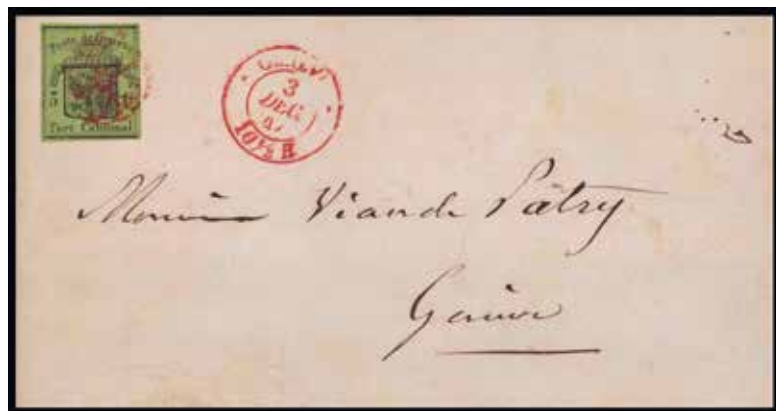 Port Cantonal
3
DEC
10½ H
Monsieur Viande Patry
Genève